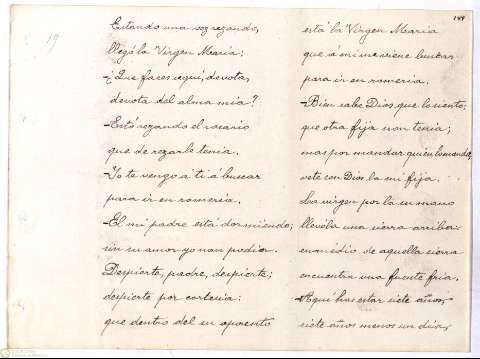 19
Estando una voz rezando,
llegó la Virgen María:
-¿Que faces aquí, devota,
devota del alma mía?
-Estó rezando el rosario
que de rezarle tenía.
-Yo te vengo á ti á buscar
para ir en romería.
-El mi padre está dormiendo;
sin su amor yo non podía.
Despierte, padre, despierte;
despierte por cortesía:
que dentro del su aposento
está la Virgen María
que á mi me viene buscar
para ir en romería.
-Bien sabe Dios que lo siento;
que otra fija non tenía;
mas por mandar quién lo manda,
vete con Dios la mi fija.
La virgen por la su mano
llevóla una sierra arriba:
en medio de aquella sierra
encuentra una fuente fría.
-Aquí has estar siete años,
siete años menos un día,